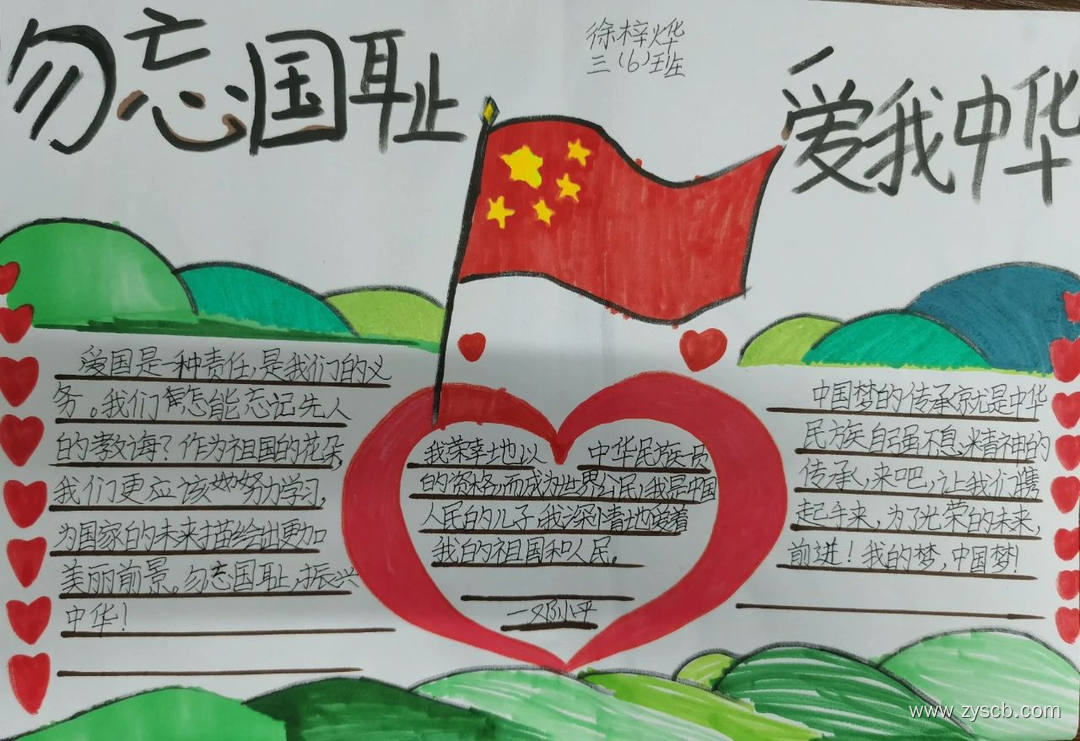 勿忘国耻
徐梓烨
三(6)班
爱我中华
爱国是一种责任,是我们的义
务。我们怎能忘记先人
的教诲?作为祖国的花朵,
我们更应该地努力学习,
为国家的未来描绘出更加
美丽前景。勿忘国耻,振兴
中华!
我荣幸地以 中华民族一员
的资格,而成为世界公民,我是中国
人民的儿子,我深情地爱着
我的祖国和人民。
一邓小平
中国梦的传承就是中华
民族自强不息,精神的
传承,来吧,让我们携
起手来,为了光荣的未来,
前进!我的梦,中国梦!
www.zyscb.com